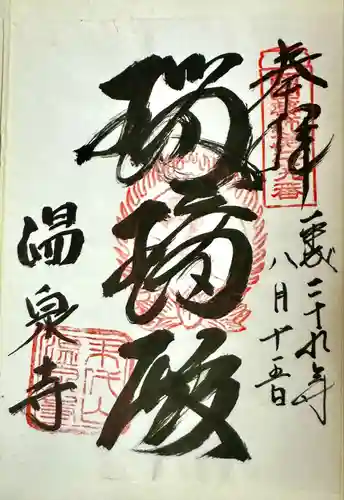 奉拝
平成二十九年
八月十五日
瑠璃殿
温泉寺
末代山